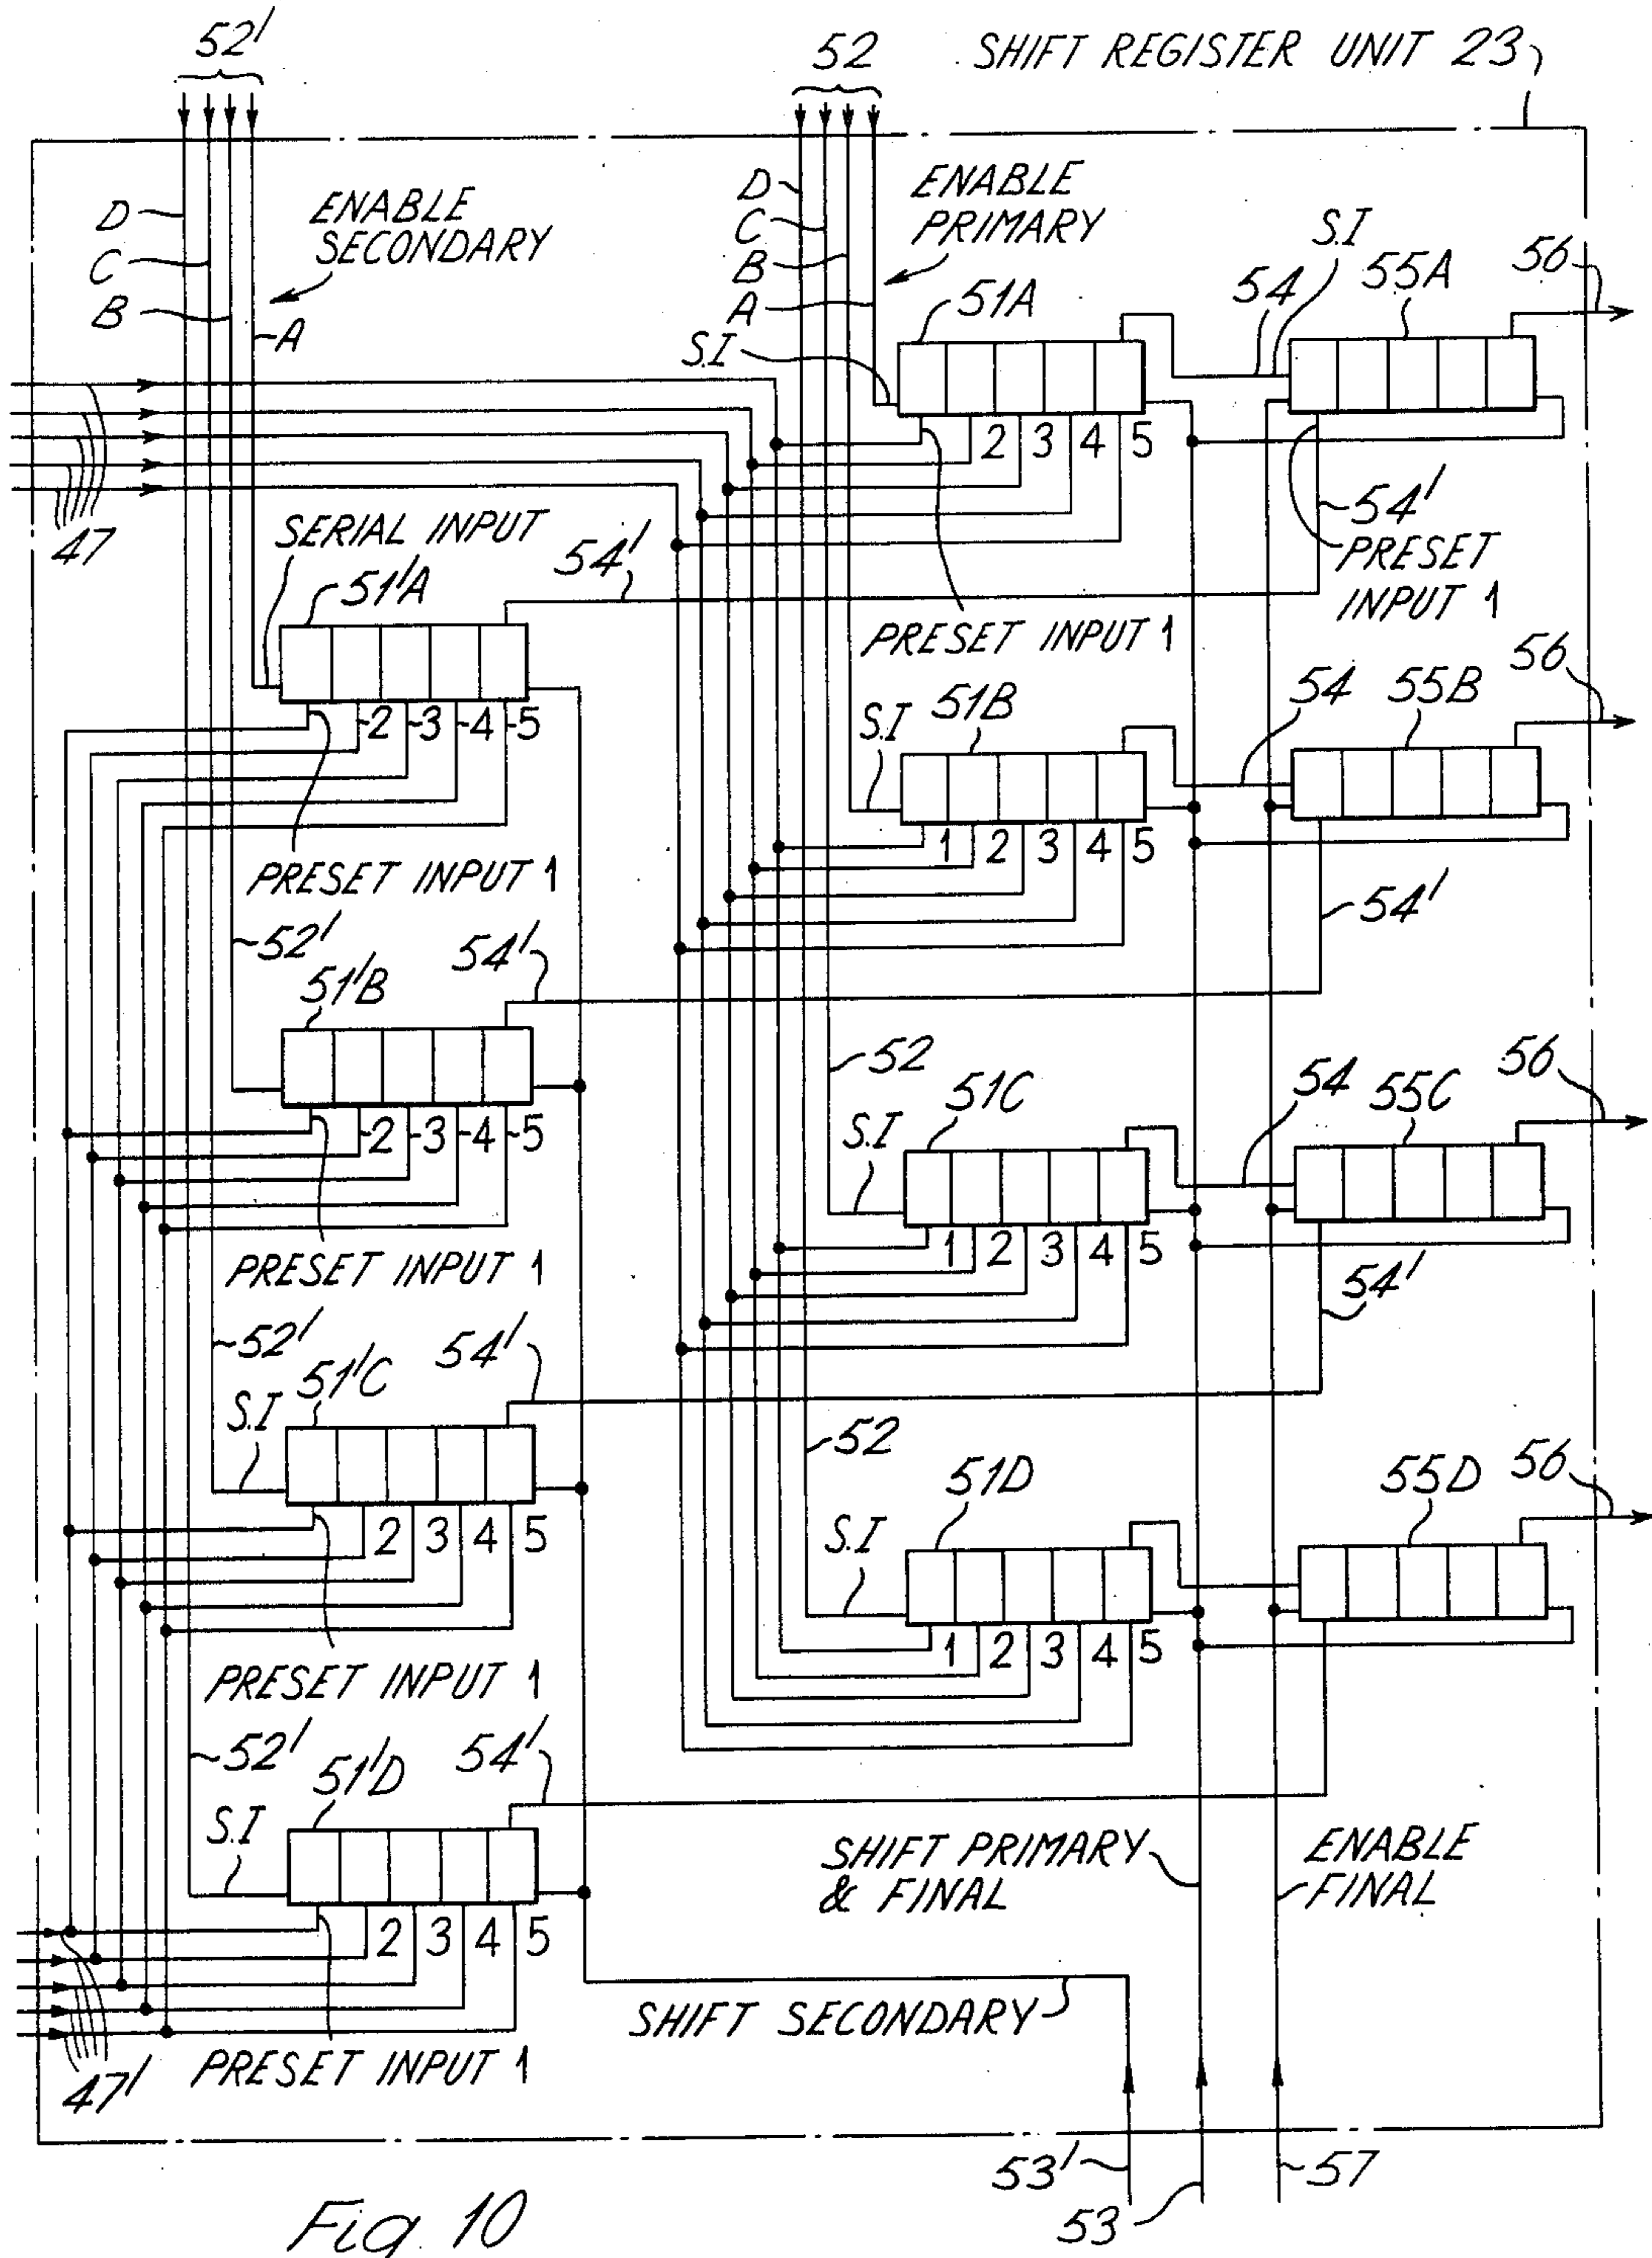 52'
52
SHIFT REGISTER UNIT 23
D
C
B
A
ENABLE
SECONDARY
D
C
B
A
ENABLE
PRIMARY
S.I
51A
54
S.I
55A
56
2
3
4
5
47
SERIAL INPUT
51'A
54'
54'
PRESET
INPUT 1
PRESET INPUT 1
2
3
4
5
PRESET INPUT 1
S.I
51B
54
55B
56
1
2
3
4
5
54'
52'
51'B
54'
2
3
4
5
PRESET INPUT 1
52
S.I
51C
54
55C
56
1
2
3
4
5
54'
52'
S.I
51'C
54'
2
3
4
5
PRESET INPUT 1
52
S.I
51D
55D
56
1
2
3
4
5
52'
S.I
51'D
54'
2
3
4
5
PRESET INPUT 1
47'
SHIFT PRIMARY
& FINAL
ENABLE
FINAL
SHIFT SECONDARY
53'
53
57
Fig. 10